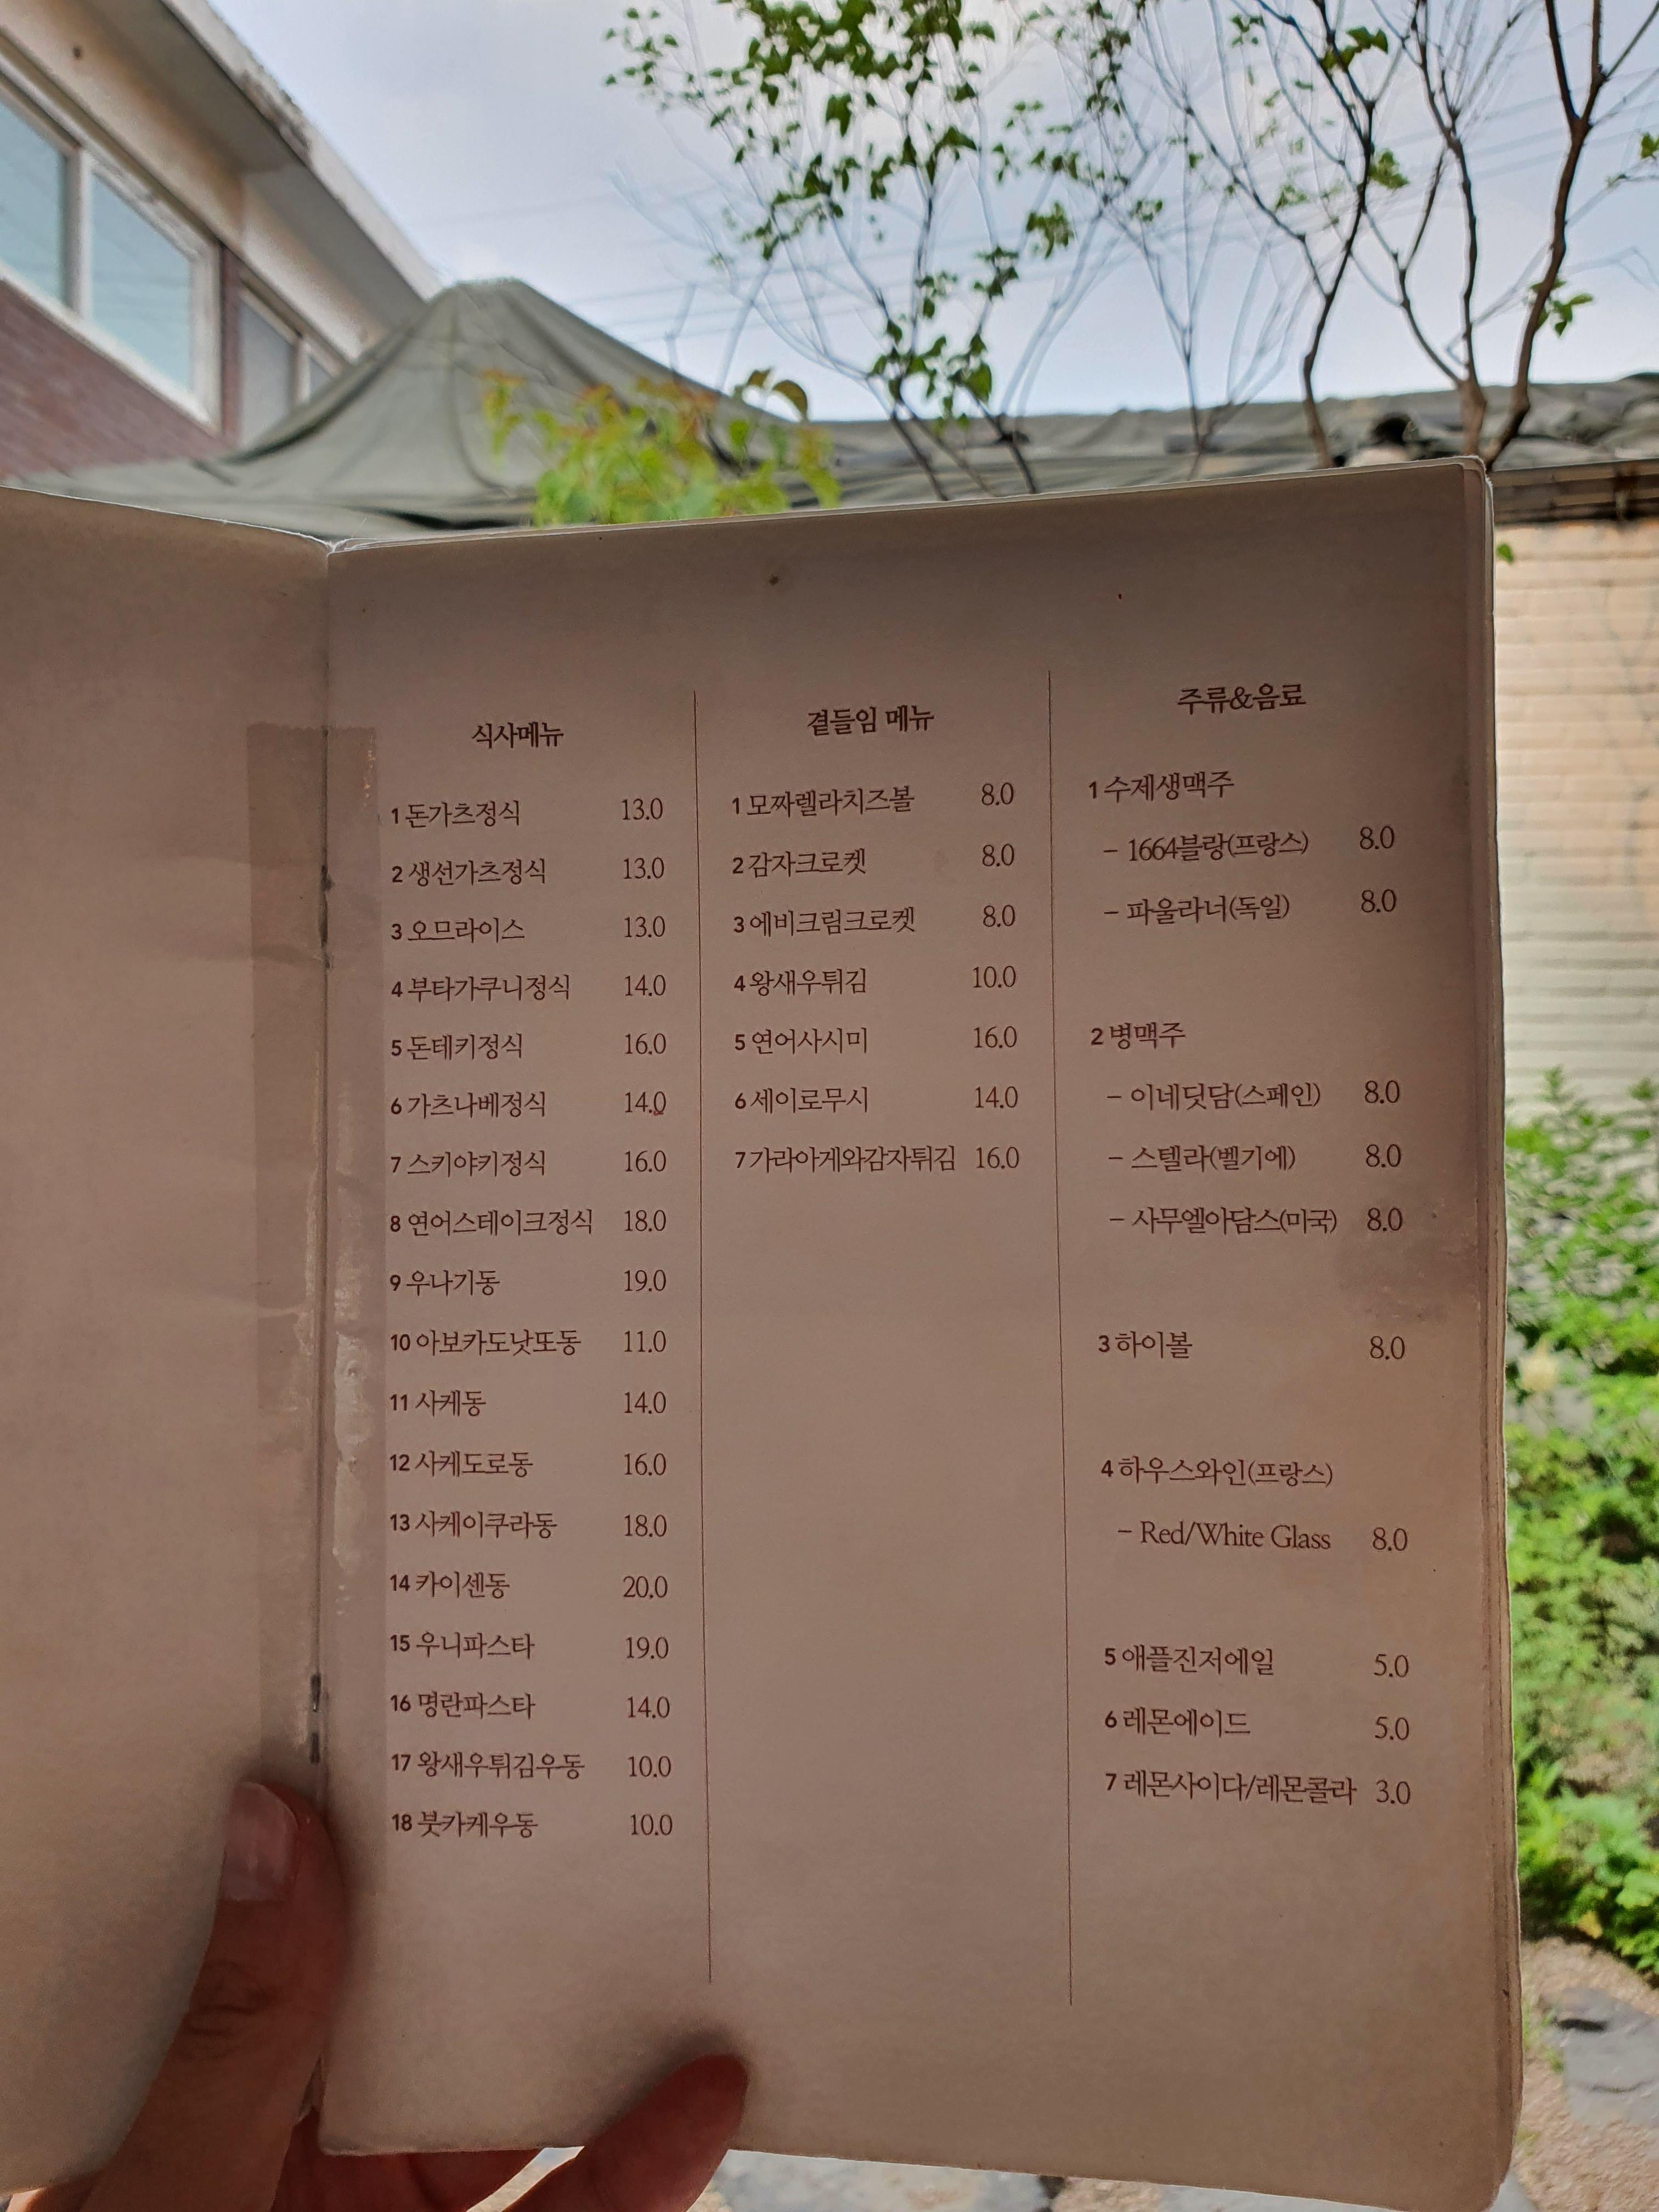 식사메뉴
1 돈가츠정식 13.0
2 생선가츠정식 13.0
3 오므라이스 13.0
4 부타가쿠니정식 14.0
5 돈테키정식 16.0
6 가츠나베정식 14.0
7 스키야키정식 16.0
8 연어스테이크정식 18.0
9 우나기동 19.0
10 아보카도낫또동 11.0
11 사케동 14.0
12 사케도로동 16.0
13 사케이쿠라동 18.0
14 카이센동 20.0
15 우니파스타 19.0
16 명란파스타 14.0
17 왕새우튀김우동 10.0
18 붓카케우동 10.0
곁들임 메뉴
1 모짜렐라치즈볼 8.0
2 감자크로켓 8.0
3 에비크림크로켓 8.0
4 왕새우튀김 10.0
5 연어사시미 16.0
6 세이로무시 14.0
7 가라아게와감자튀김 16.0
주류&음료
1 수제생맥주
– 1664블랑(프랑스) 8.0
– 파울라너(독일) 8.0
2 병맥주
– 이네딧담(스페인) 8.0
– 스텔라(벨기에) 8.0
– 사무엘아담스(미국) 8.0
3 하이볼 8.0
4 하우스와인(프랑스)
– Red/White Glass 8.0
5 애플진저에일 5.0
6 레몬에이드 5.0
7 레몬사이다/레몬콜라 3.0